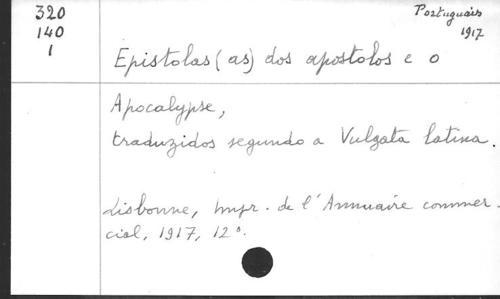 320 Portuguais
140 1917
1
Epistolas (as) dos apostolos e o
Apocalypse,
traduzidos segundo a Vulgata latina.
Lisbonne, Impr. de l'Annuaire commer-
cial, 1917, 12°.